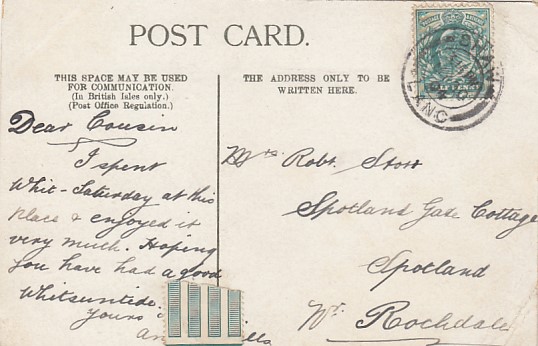 POST CARD.
THIS SPACE MAY BE USED
FOR COMMUNICATION.
(In British Isles only.)
(Post Office Regulation.)
THE ADDRESS ONLY TO BE
WRITTEN HERE.
Dear Cousin
I spent
Whit-Saturday at this
place & enjoyed it
very much. Hoping
you have had a good
Whitsuntide.
Yours
Mrs Robt. Stott
Spotland Gate Cottage
Spotland
Nr. Rochdale
LANC